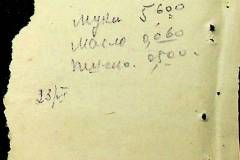 Муки 5600
Масло 0,060
Пшено. 0,500.
23/VI